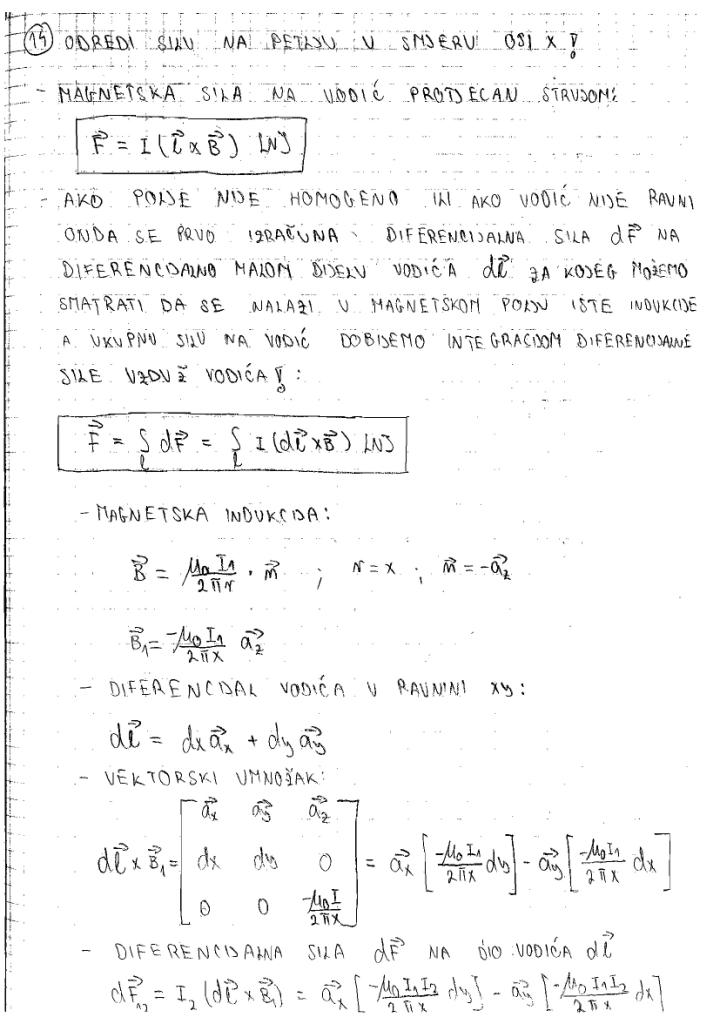 15 ODREDI SILU NA PETLJU U SMJERU OSI X !
- MAGNETSKA SILA NA VODIČ PROTJECAN STRUJOM:
F⃗ = I (l⃗ x B⃗) [N]
- AKO POLJE NIJE HOMOGENO ILI AKO VODIČ NIJE RAVNI
ONDA SE PRVO IZRAČUNA DIFERENCIJALNA SILA dF⃗ NA
DIFERENCIJALNO MALOM DIJELU VODIČA dl⃗ ZA KOJEG MOŽEMO
SMATRATI DA SE NALAZI U MAGNETSKOM POLJU ISTE INDUKCIJE
A UKUPNU SILU NA VODIČ DOBIJEMO INTEGRACIJOM DIFERENCIJALNE
SILE UZDUŽ VODIČA ! :
F⃗ = ∫_l dF⃗ = ∫_l I (dl⃗ x B⃗) [N]
- MAGNETSKA INDUKCIJA:
B⃗ = μ₀ I₁ / 2πr · n⃗ ; r = x ; n⃗ = -a⃗z
B⃗₁ = -μ₀ I₁ / 2πx a⃗z
- DIFERENCIJAL VODIČA U RAVNINI xy:
dl⃗ = dx a⃗x + dy a⃗y
- VEKTORSKI UMNOŽAK:
a⃗x a⃗y a⃗z
dl⃗ x B⃗₁ = dx dy 0 = a⃗x [-μ₀ I₁ / 2πx dy] - a⃗y [-μ₀ I₁ / 2πx dx]
0 0 -μ₀ I / 2πx
- DIFERENCIJALNA SILA dF⃗ NA DIO VODIČA dl⃗
dF⃗₁₂ = I₂ (dl⃗ x B⃗₁) = a⃗x [-μ₀ I₁ I₂ / 2πx dy] - a⃗y [-μ₀ I₁ I₂ / 2πx dx]